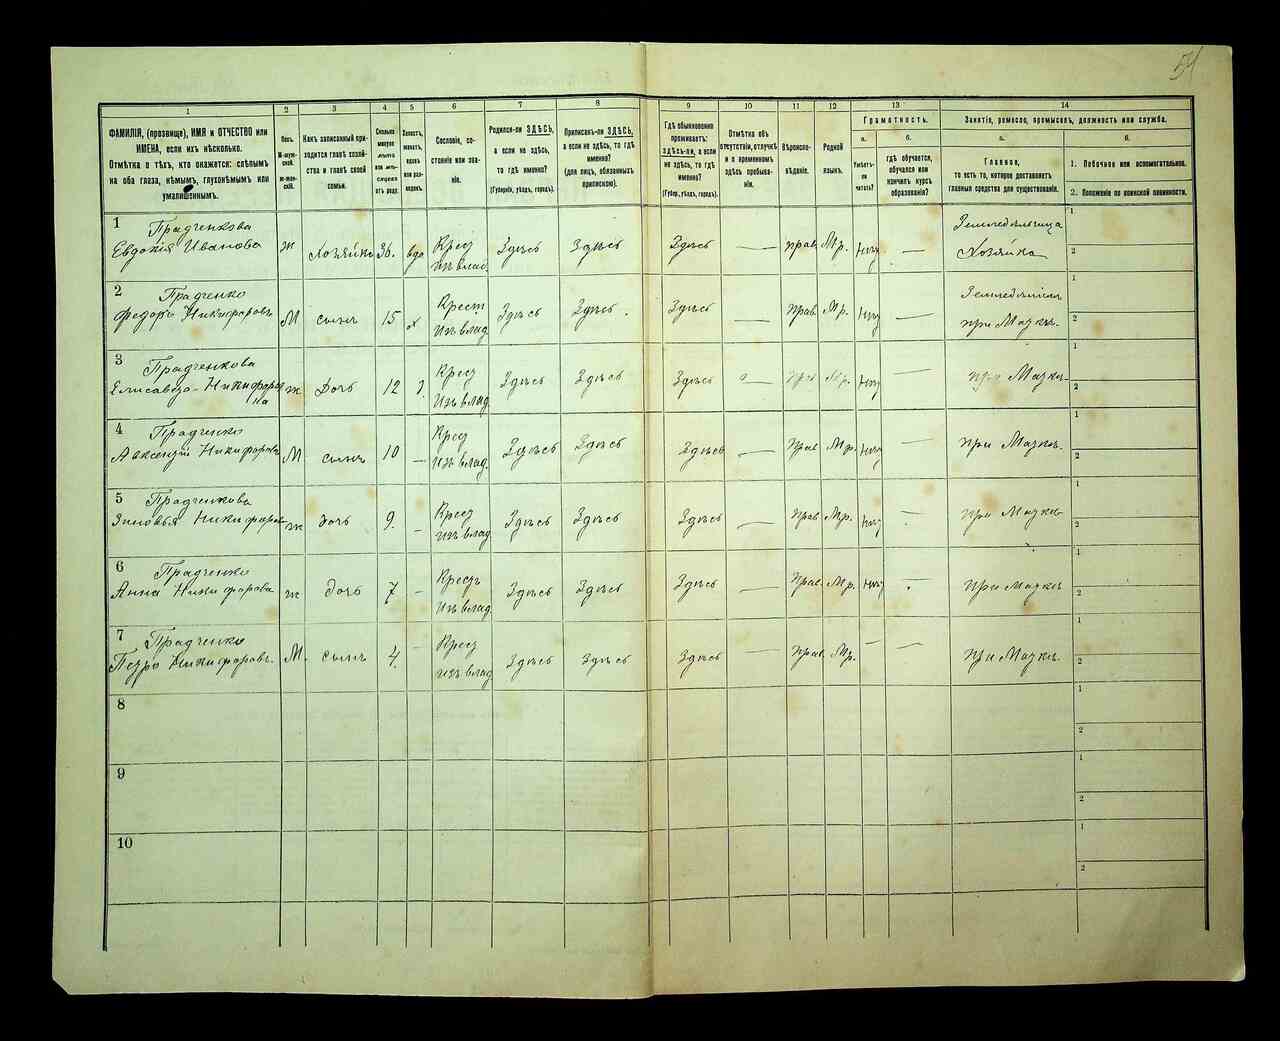 54
1
ФАМИЛІЯ, (прозвище), ИМЯ и ОТЧЕСТВО или
ИМЕНА, если ихъ нѣсколько.
Отмѣтка о тѣхъ, кто окажется: слѣпымъ
на оба глаза, нѣмымъ, глухонѣмымъ или
умалишеннымъ.
2
Полъ.
М-мужской.
Ж-женскій.
3
Какъ записанный при-
ходится главѣ хозяй-
ства и главѣ своей
семьи.
4
Сколько
минуло
лѣтъ
или мѣ-
сяцевъ
отъ роду.
5
Холостъ,
женатъ,
вдовъ
или раз-
веденъ.
6
Сословіе, со-
стояніе или зва-
ніе.
7
Родился-ли ЗДѢСЬ,
а если не здѣсь,
то гдѣ именно?
(Губернія, уѣздъ, городъ).
8
Приписанъ-ли ЗДѢСЬ,
а если не здѣсь, то гдѣ
именно?
(для лицъ, обязанныхъ
припискою).
9
Гдѣ обыкновенно
проживаетъ:
здѣсь-ли, а если
не здѣсь, то гдѣ
именно?
(Губер., уѣздъ, городъ).
10
Отмѣтка объ
отсутствіи, отлучкѣ
и о временномъ
здѣсь пребыва-
ніи.
11
Вѣроиспо-
вѣданіе.
12
Родной
языкъ.
13
Грамотность.
а.
Умѣетъ-
ли
читать?
б.
гдѣ обучается,
обучался или
кончилъ курсъ
образованія?
14
Занятіе, ремесло, промыселъ, должность или служба.
а.
Главное,
то есть то, которое доставляетъ
главныя средства для существованія.
б.
1. Побочное или вспомогательное.
2. Положеніе по воинской повинности.
1 Прадченкова
Евдокія Иванова ж Хозяйка 36. вдо Крес Изъ влад. Здѣсь Здѣсь Здѣсь — прав Мр. Нѣт — Земледѣлица Хозяйка 1 2
2 Прадченко
Федоръ Никифоровъ М сынъ 15 х Крест Изъ влад. Здѣсь Здѣсь. Здѣсь — Прав Мр. Нѣт — при Матки. 1 2
3 Прадченкова
Елисавета Никифоров
на ж Дочь 12 Крест Изъ влад Здѣсь Здѣсь Здѣсь — Прав Мр. Нѣт — при Матки 1 2
4 Прадченко
Авксентій Никифоровъ М сынъ 10 — Крест Изъ влад. Здѣсь Здѣсь Здѣсь — Прав Мр. Нѣт — при Матки. 1 2
5 Прадченкова
Зиновья Никифоров ж дочь 9. — Крест изъ влад Здѣсь Здѣсь Здѣсь — Прав Мр. Нѣт — при Матки 1 2
6 Прадченко
Анна Никифорова ж дочь 7 — Крестъ Изъ влад. Здѣсь Здѣсь Здѣсь — Прав. Мр. Нѣт — при Матки 1 2
7 Прадченко
Петро Никифоровъ. М. сынъ 4. — Крест изъ влад Здѣсь Здѣсь Здѣсь — Прав. Мр. — — при Матки. 1 2
8 1 2
9 1 2
10 1 2